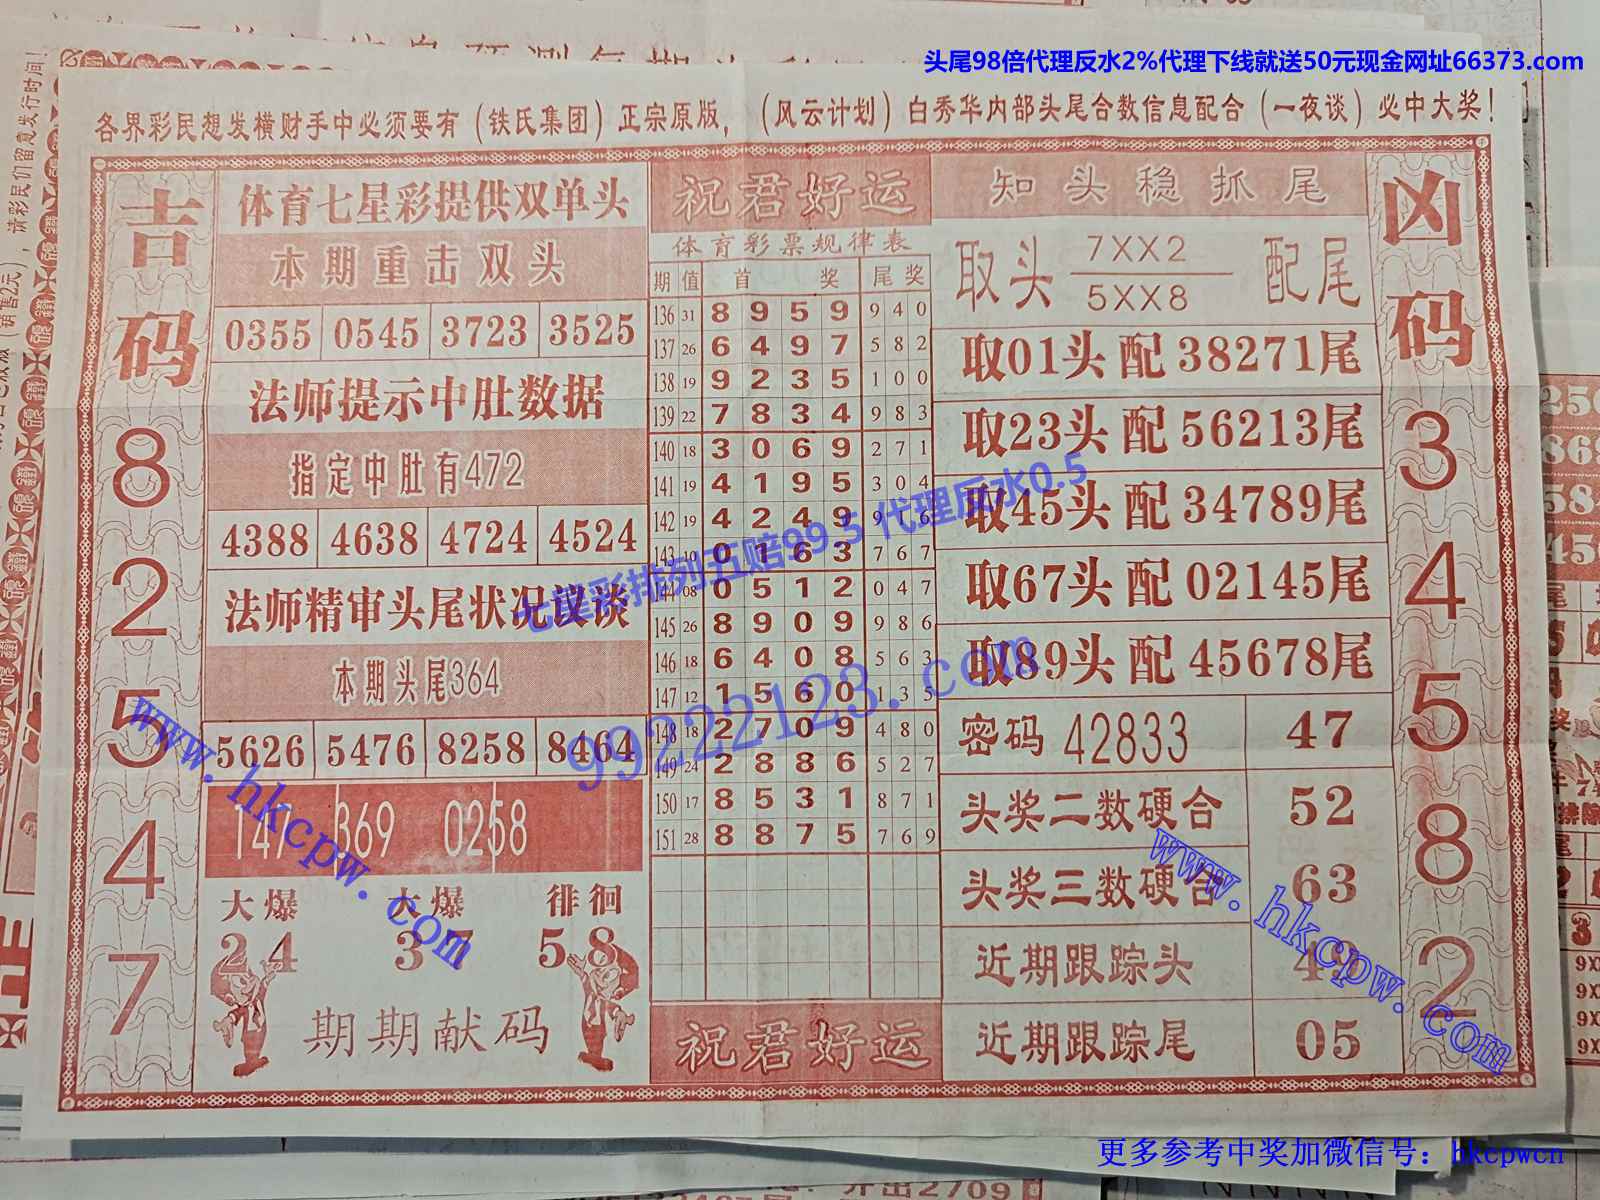 头尾98倍代理反水2%代理下线就送50元现金网址66373.com
各界彩民想发横财手中必须要有（铁氏集团）正宗原版，（风云计划）白秀华内部头尾合数信息配合（一夜谈）必中大奖！
吉码
8
2
5
4
7
体育七星彩提供双单头
本期重击双头
0355 0545 3723 3525
法师提示中肚数据
指定中肚有472
4388 4638 4724 4524
法师精审头尾状况议谈
本期头尾364
5626 5476 8258 8464
147 369 0258
大爆 大爆 徘徊
24 37 58
期期献码
祝君好运
体育彩票规律表
期 值 首 奖 尾 奖
136 31 8 9 5 9 9 4 0
137 26 6 4 9 7 5 8 2
138 19 9 2 3 5 1 0 0
139 22 7 8 3 4 9 8 3
140 18 3 0 6 9 2 7 1
141 19 4 1 9 5 3 0 4
142 19 4 2 4 9 9 6
143 10 0 1 6 3 7 6 7
144 08 0 5 1 2 0 4 7
145 26 8 9 0 9 9 8 6
146 18 6 4 0 8 5 6 3
147 12 1 5 6 0 1 3 5
148 18 2 7 0 9 4 8 0
149 24 2 8 8 6 5 2 7
150 17 8 5 3 1 8 7 1
151 28 8 8 7 5 7 6 9
祝君好运
知头稳抓尾
取头 7XX2 配尾
5XX8
取01头 配 38271尾
取23头 配 56213尾
取45头 配 34789尾
取67头 配 02145尾
取89头 配 45678尾
密码 42833 47
头奖二数硬合 52
头奖三数硬合 63
近期跟踪头 49
近期跟踪尾 05
凶码
3
4
5
8
2
七星彩排列五赔99.5 代理反水0.5
99222123.com
www.hkcpw.com
www.hkcpw.com
更多参考中奖加微信号：hkcpwcn